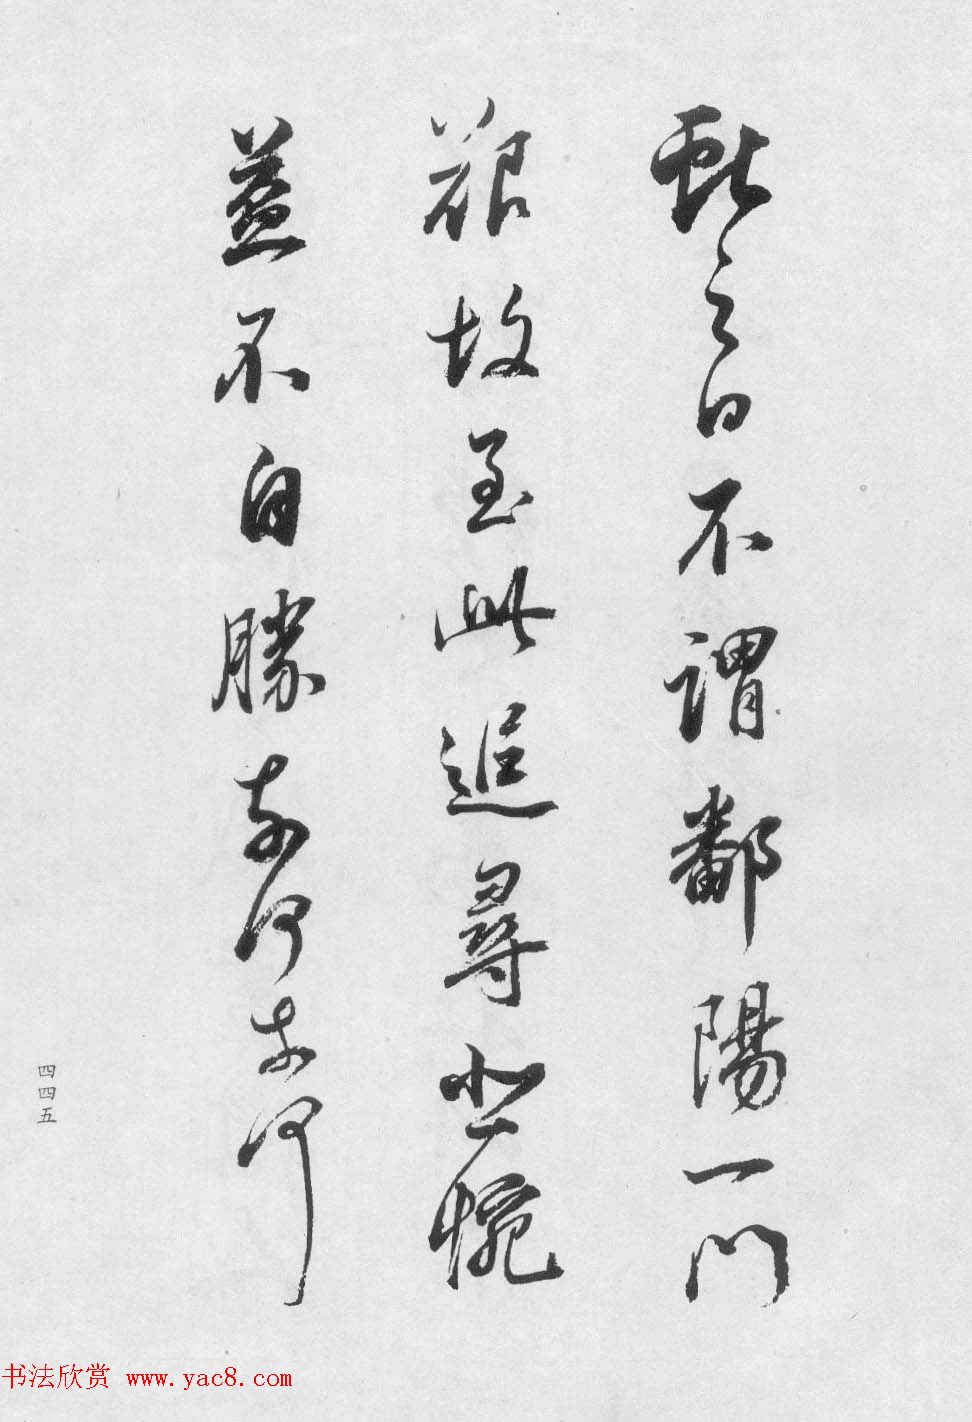 獻之白不謂鄱陽一門
艱故至此追尋悲惋
益不自勝奈何奈何
四四五
书法欣赏 www.yac8.com